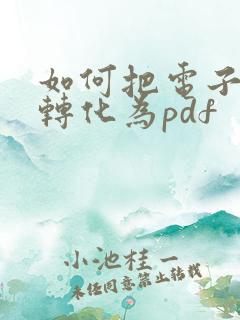 如何把電子
轉化為pdf
小池桂一
未任同意禁止轉載